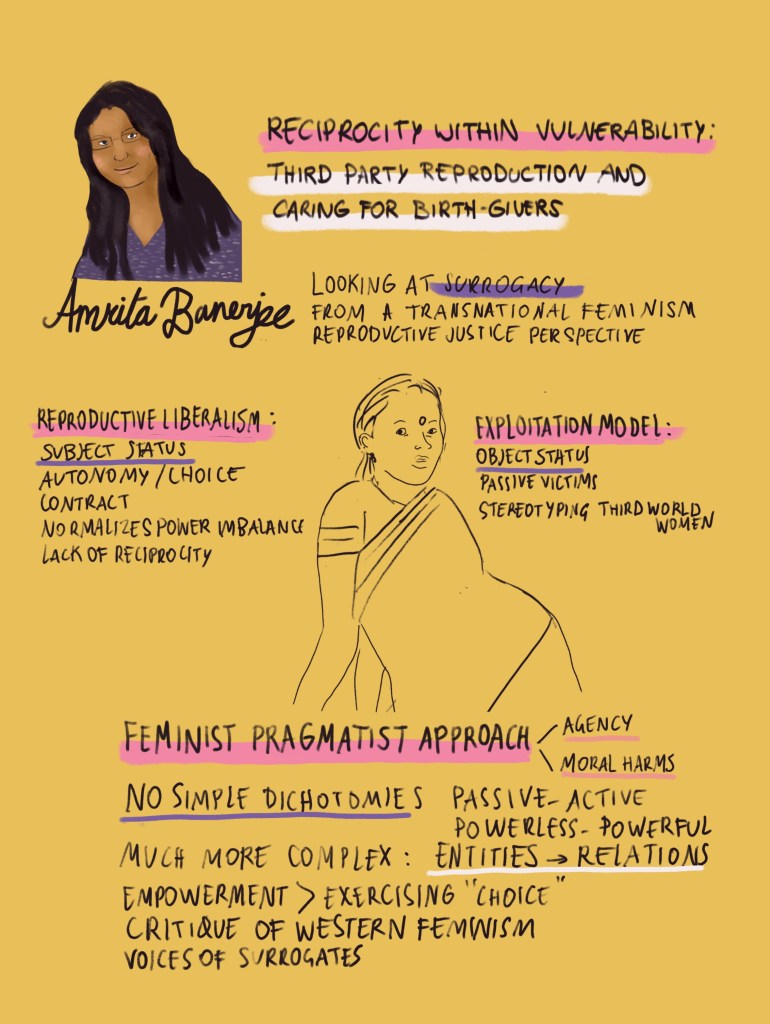 RECIPROCITY WITHIN VULNERABILITY:
THIRD PARTY REPRODUCTION AND
CARING FOR BIRTH-GIVERS
Amrita Banerjee
LOOKING AT SURROGACY
FROM A TRANSNATIONAL FEMINISM
REPRODUCTIVE JUSTICE PERSPECTIVE
REPRODUCTIVE LIBERALISM:
SUBJECT STATUS
AUTONOMY/CHOICE
CONTRACT
NORMALIZES POWER IMBALANCE
LACK OF RECIPROCITY
EXPLOITATION MODEL:
OBJECT STATUS
PASSIVE VICTIMS
STEREOTYPING THIRD WORLD
WOMEN
FEMINIST PRAGMATIST APPROACH
AGENCY
MORAL HARMS
NO SIMPLE DICHOTOMIES PASSIVE-ACTIVE
POWERLESS-POWERFUL
MUCH MORE COMPLEX: ENTITIES → RELATIONS
EMPOWERMENT > EXERCISING "CHOICE"
CRITIQUE OF WESTERN FEMINISM
VOICES OF SURROGATES